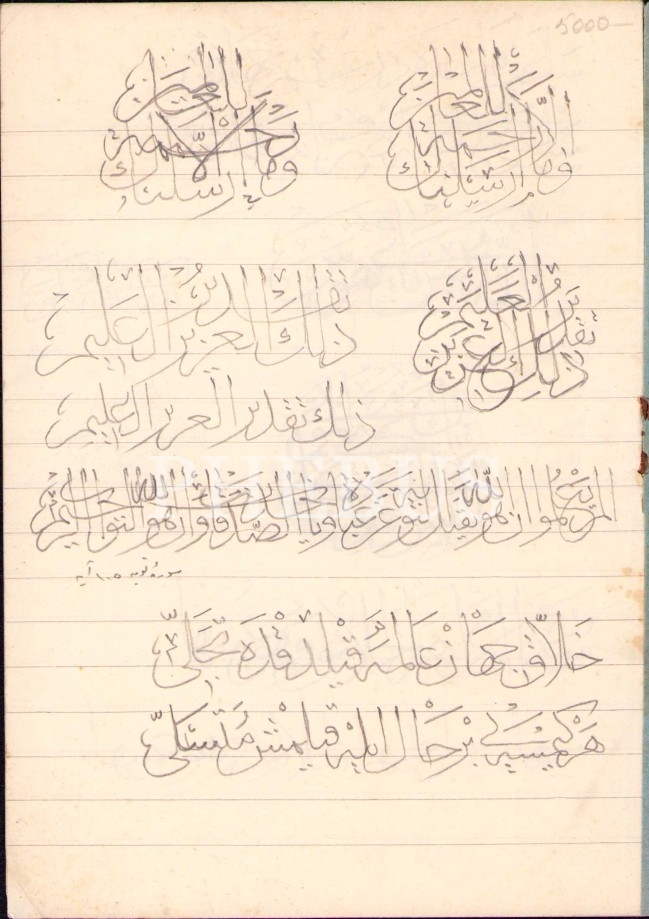 5000
وما أرسلناك إلا رحمة للعالمين
وما أرسلناك إلا رحمة للعالمين
ذلك تقدير العزيز العليم
ذلك تقدير العزيز العليم
ذلك تقدير العزيز العليم
الم يعلموا ان الله هو يقبل التوبة عن عباده وياخذ الصدقات وان الله هو التواب الرحيم
سورۀ توبه ١٠٥ آيه
خلاق جهان عالمه قيلدقده تجلى
هر كيمسه يى بر حال ايله قيلمش متسلى
PHEBUS